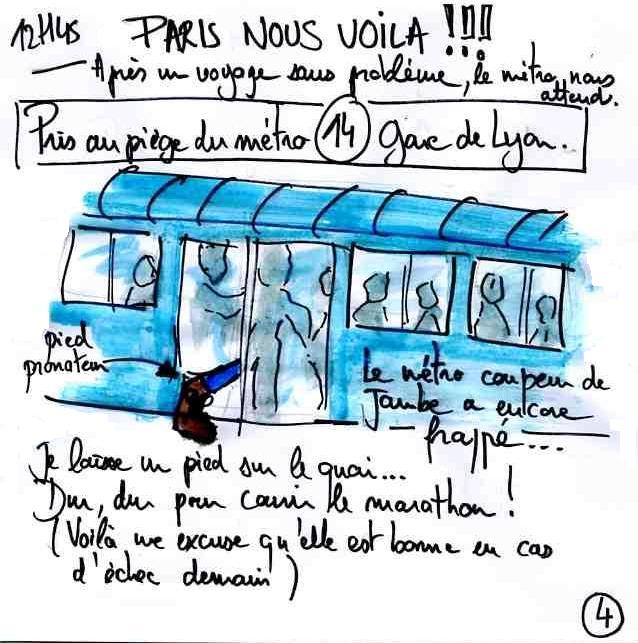 12H45 PARIS NOUS VOILA !!!!
Après un voyage sans problème, le métro nous
attend.
Pris au piège du métro 14 gare de Lyon.
pied
pronateur
Le métro coupeur de
Jambe a encore
frappé...
Je laisse un pied sur le quai...
Dur, dur pour courir le marathon !
(Voilà une excuse qu'elle est bonne en cas
d'échec demain)
4